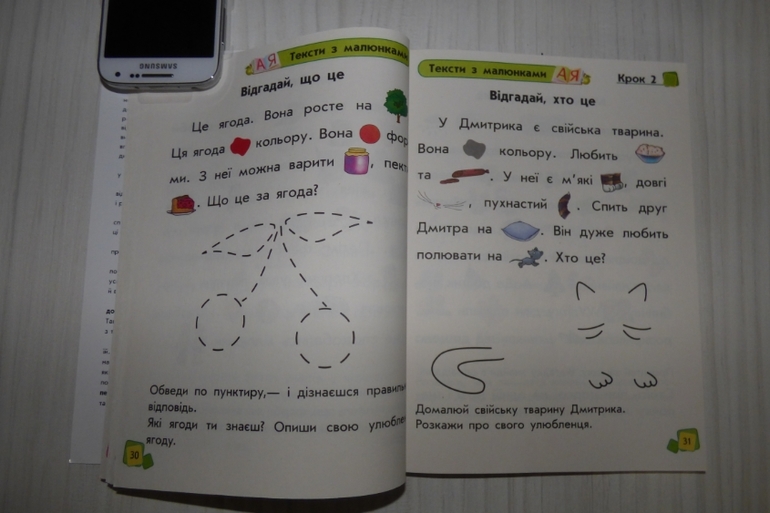 SAMSUNG
АЯ Тексти з малюнками
Відгадай, що це
Це ягода. Вона росте на
Ця ягода кольору. Вона фор
ми. З неї можна варити , пекти
. Що це за ягода?
Обведи по пунктиру,— і дізнаєшся правиль
відповідь.
Які ягоди ти знаєш? Опиши свою улюблен
ягоду.
30
Тексти з малюнками АЯ
Крок 2
Відгадай, хто це
У Дмитрика є свійська тварина.
Вона кольору. Любить
та . У неї є м'які , довгі
, пухнастий . Спить друг
Дмитра на . Він дуже любить
полювати на . Хто це?
Домалюй свійську тварину Дмитрика.
Розкажи про свого улюбленця.
31